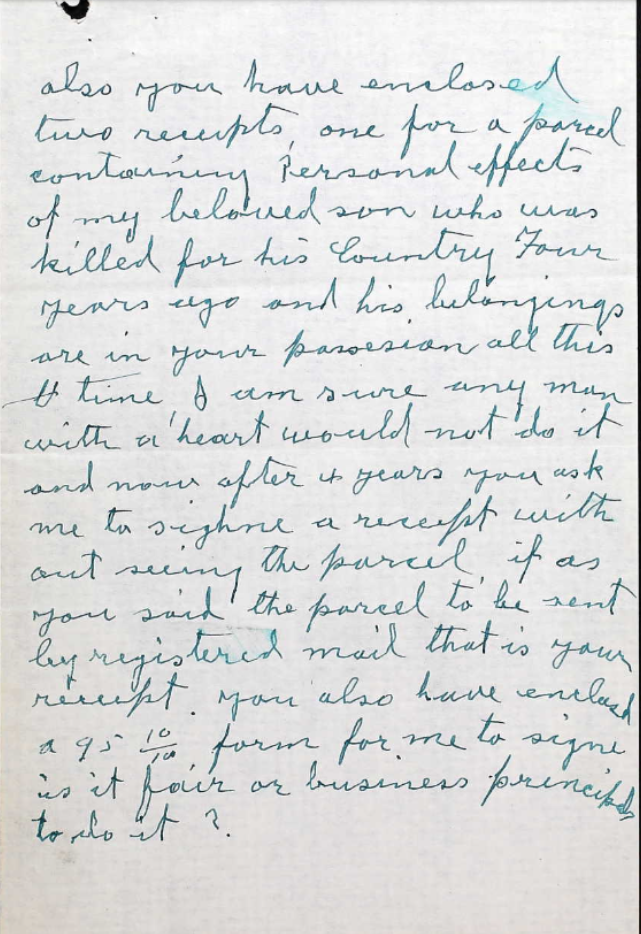 also you have enclosed
two receipts, one for a parcel
containing Personal effects
of my beloved son who was
killed for his Country Four
years ago and his belongings
are in your possesian all this
time, I am sure any man
with a heart would not do it
and now after 4 years you ask
me to sighne a receipt with
out seeing the parcel, if as
you said the parcel to be sent
by registered mail that is your
receipt. you also have enclosd
a 95 10/10 form for me to signe
is it fair or business principds
to do it ?.